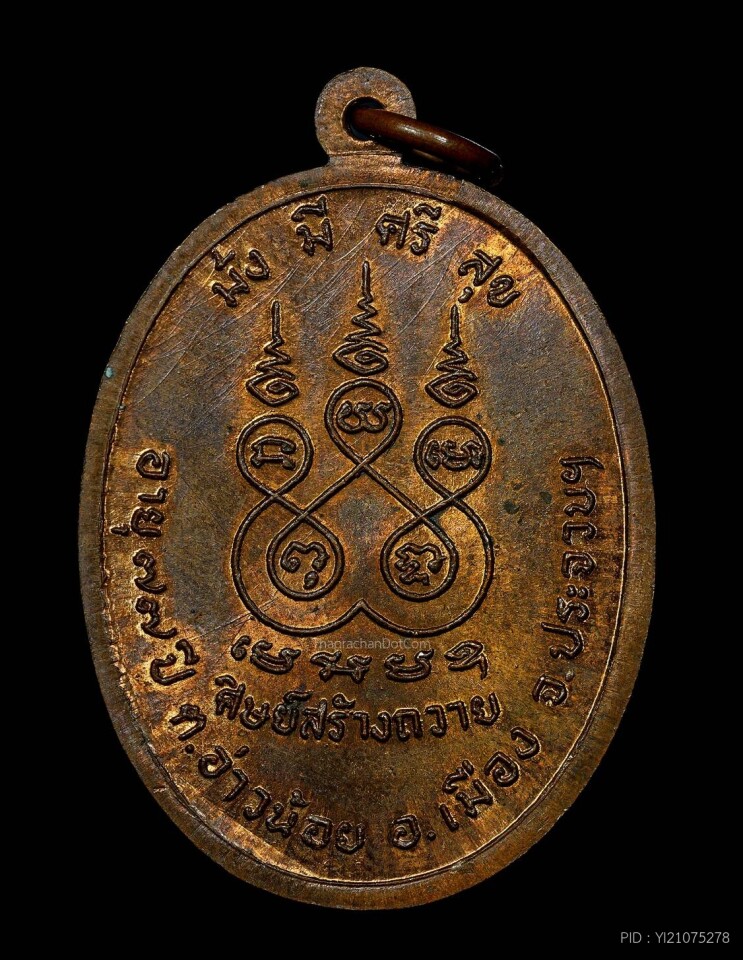 มั่ง มี ศรี สุข
ศิษย์สร้างถวาย
อายุ ๗๗ ปี ต.อ่าวน้อย อ.เมือง จ.ประจวบฯ
thaprachanDotCom
PID : YI21075278